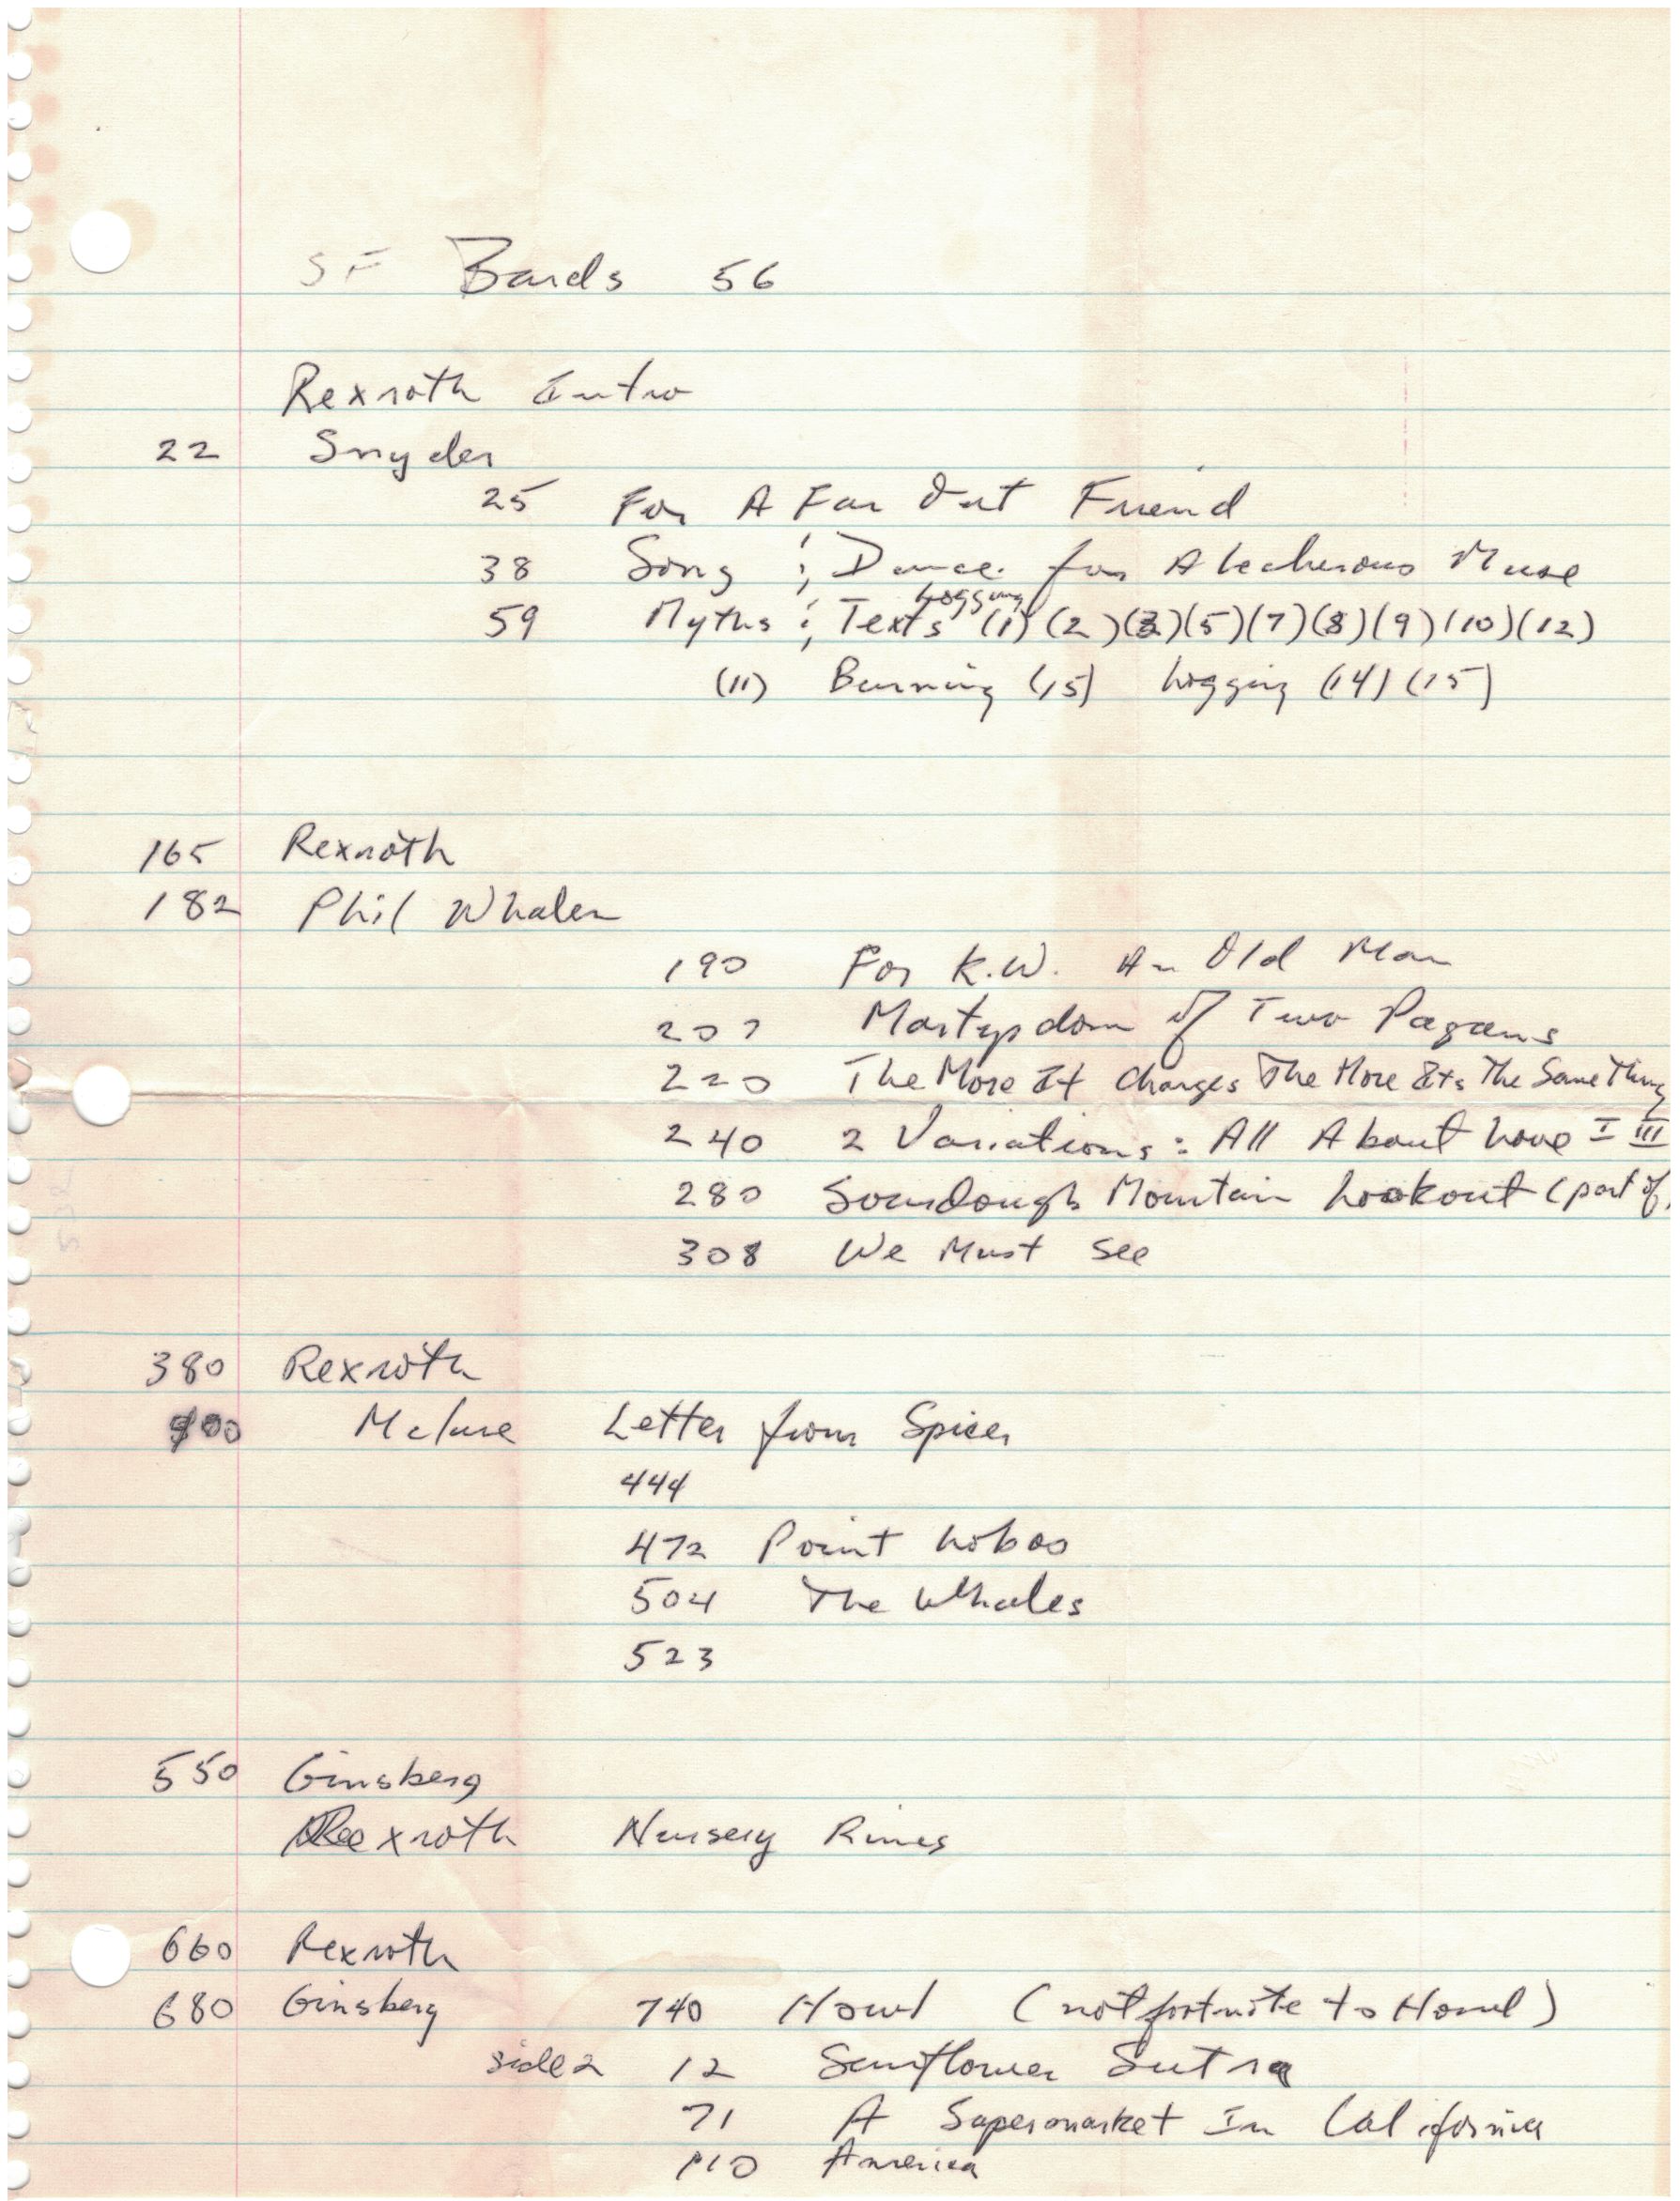 SF Bards 56
Rexroth Intro
22 Snyder
25 For A Far Out Friend
38 Song & Dance for A Lecherous Muse
Logging
59 Myths & Texts (1) (2) (3) (5) (7) (8) (9) (10) (12)
(11) Burning (15) Logging (14) (15)
165 Rexroth
182 Phil Whalen
190 For K.W. An Old Man
207 Martyrdom of Two Pagans
220 The More It Changes The More Its The Same Thing
240 2 Variations: All About Love I III
280 Sourdough Mountain Lookout (part of
308 We Must See
380 Rexroth
400 McLure Letter from Spicer
444
472 Point Lobos
504 The Whales
523
550 Ginsberg
Rexroth Nursery Rimes
660 Rexroth
680 Ginsberg 740 Howl (not footnote to Howl)
side 2 12 Sunflower Sutra
71 A Supermarket In California
110 America